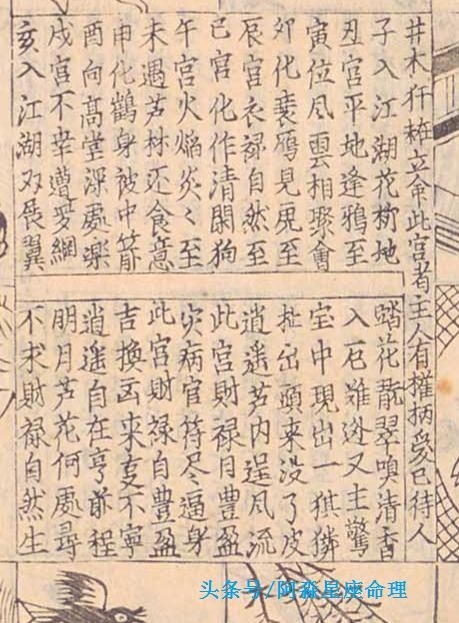 井木犴粧立命此宮者主人有權柄愛己待人
子入江湖花柳地
踏花散翠嗅清香
丑宮平地逢鴉至
入厄难迯又主驚
寅位凤雲相聚會
宝中現出一猉獜
卯化喪鴈見虎至
扯出頭来没了皮
辰宮衣禄自然至
逍遥芦内逞凤流
巳宮化作清閑狗
此宮財禄日豊盈
午宮火焔炎々至
灾病官符尽逼身
未遇芦林还食意
此宮財禄自豊盈
申化鶴身被中箭
吉換凶来变不寧
酉向髙堂深處楽
逍遥自在亨前程
戌宮不幸遭罗網
明月芦花何處尋
亥入江湖双展翼
不求財禄自然生
头条号/阿淼星座命理